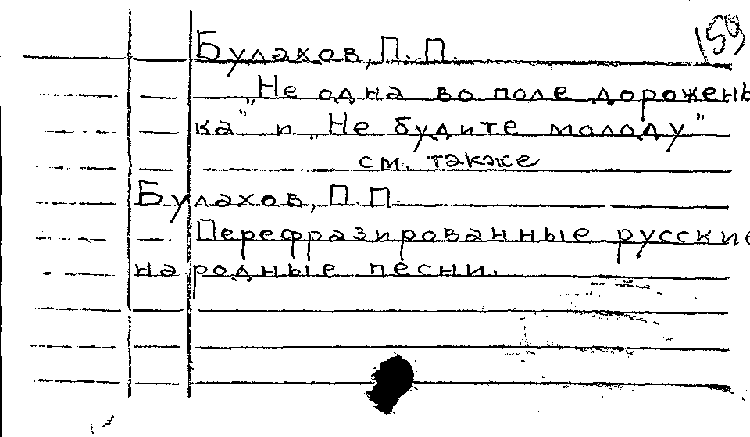 159
Булахов, П. П.
„Не одна во поле дорожень
ка" и „Не будите молоду"
см. также
Булахов, П. П.
Перефразированные русские
народные песни.